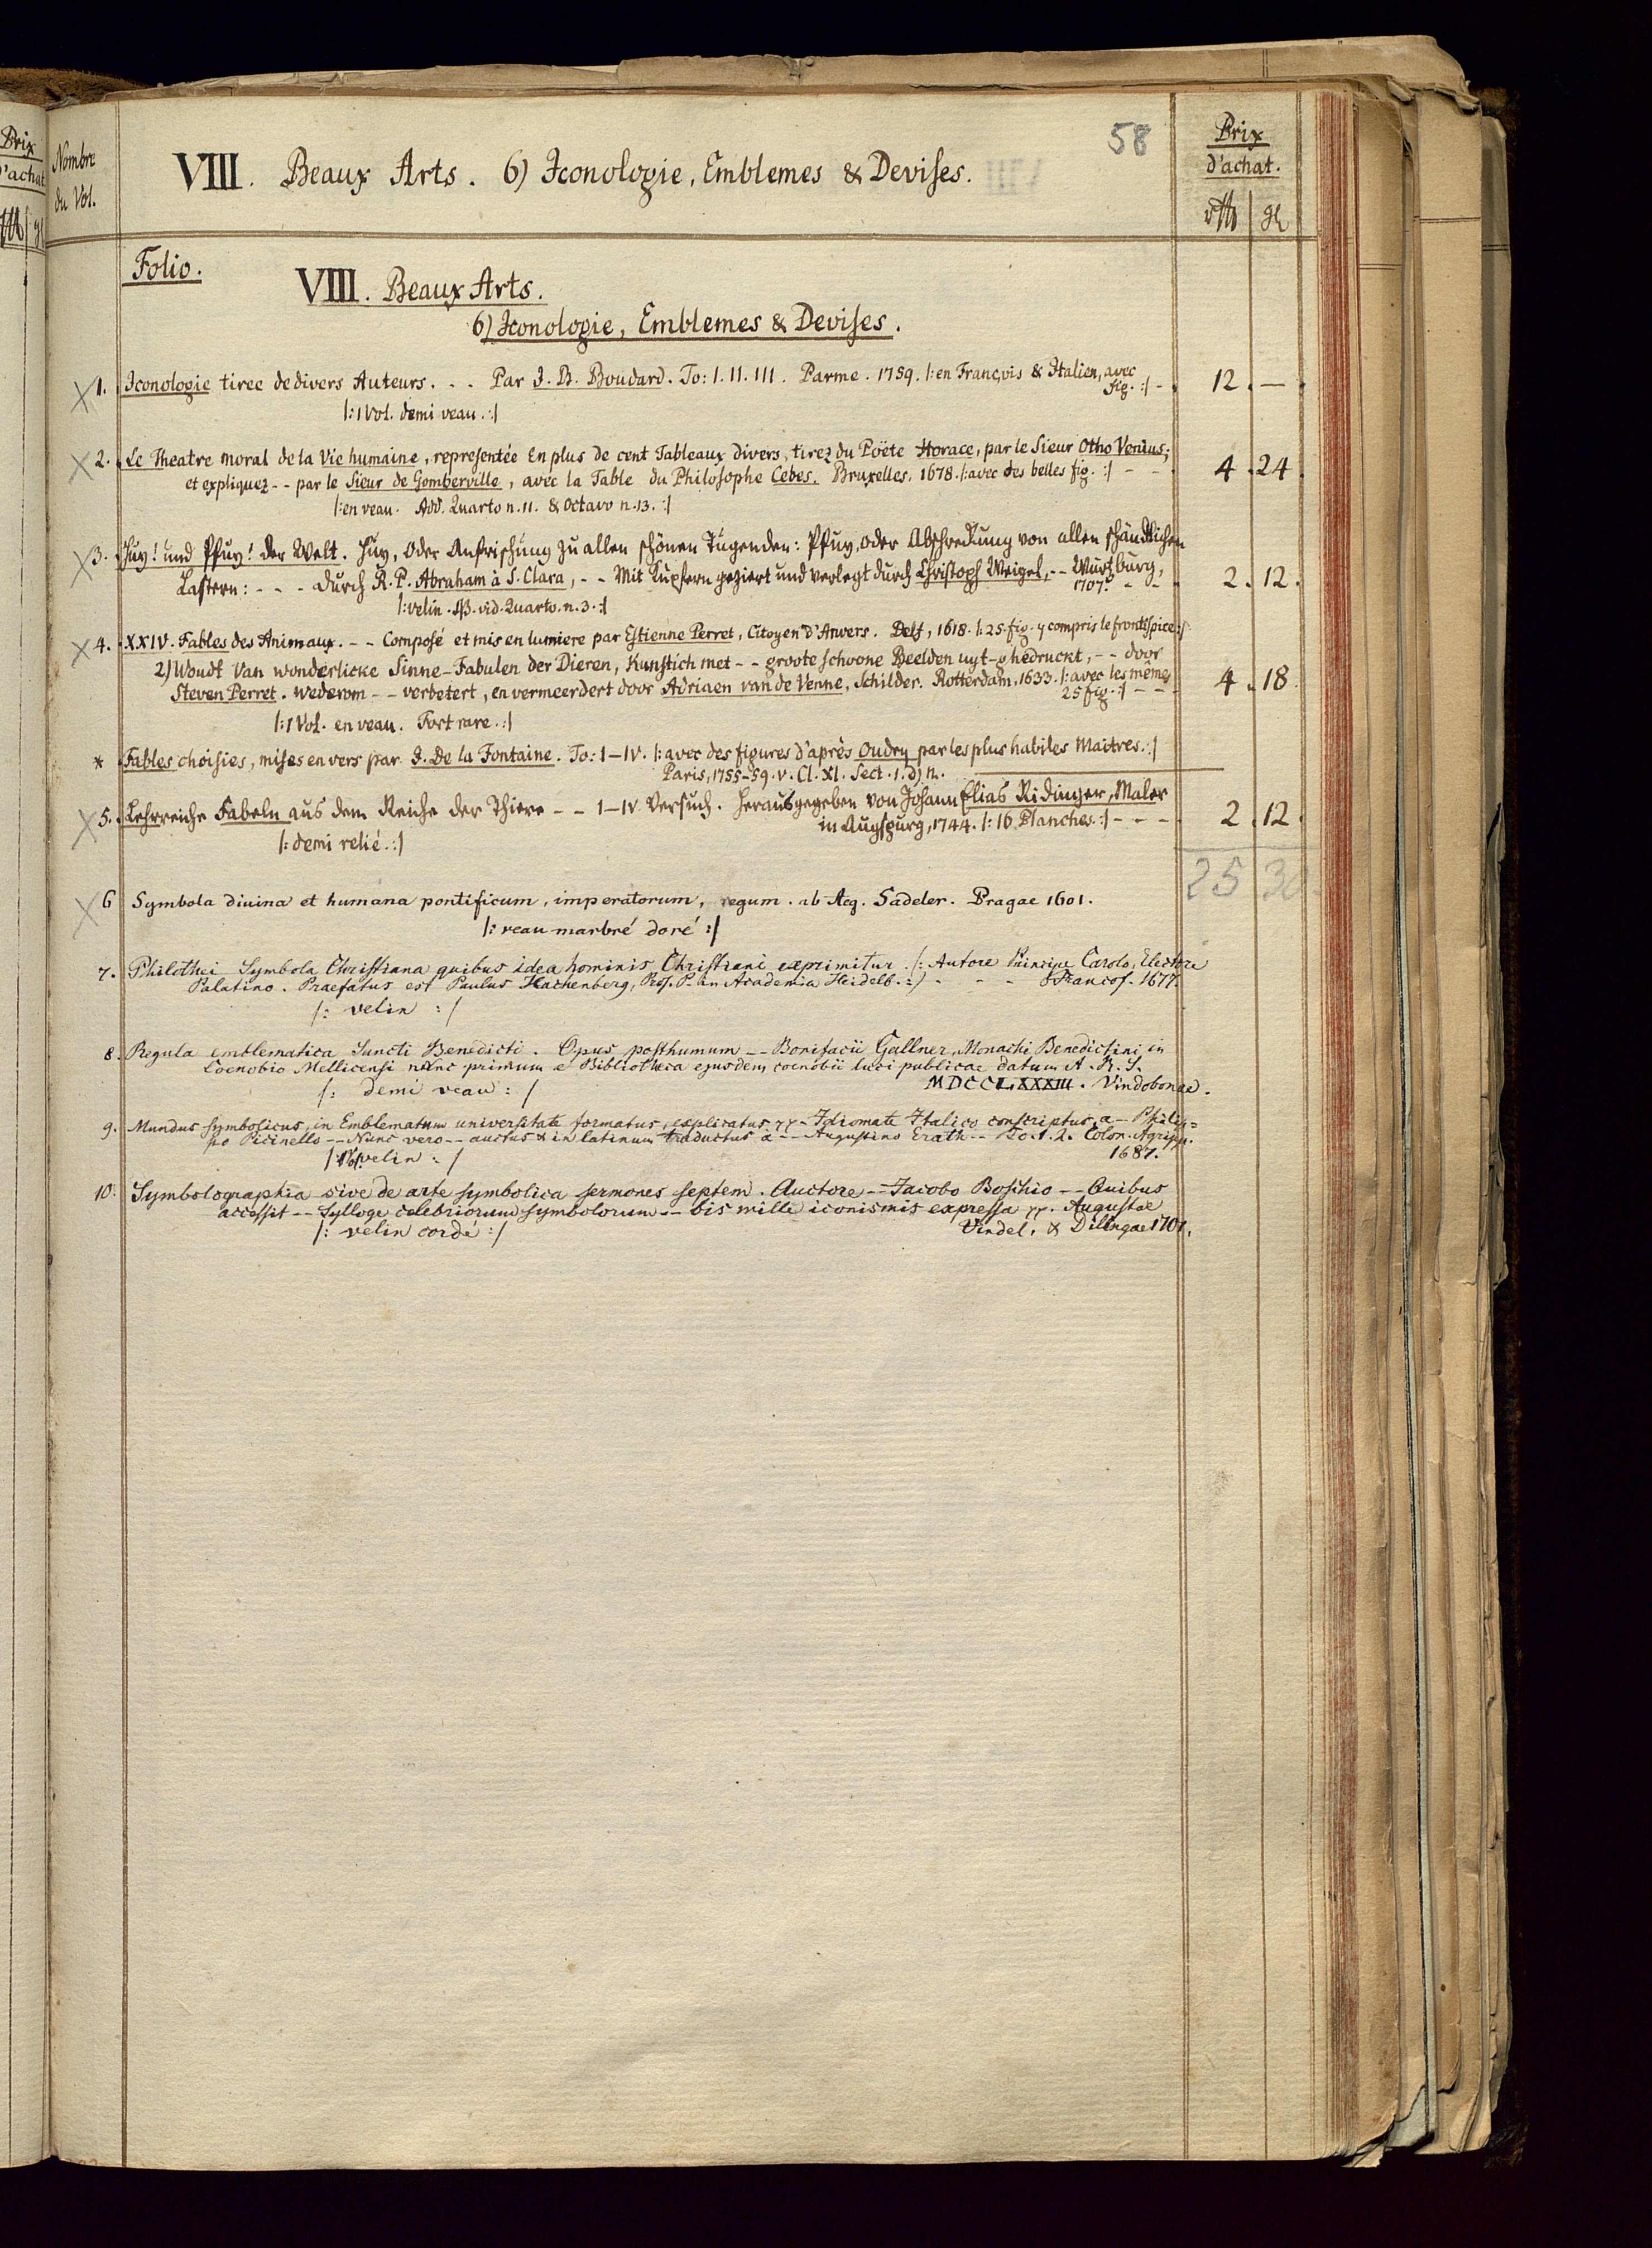 Prix
d'achat
Nombre
du Vol.
VIII. Beaux Arts. 6) Iconologie, Emblemes & Devises.
58
Prix
d'achat.
Folio.
VIII. Beaux Arts.
6) Iconologie, Emblemes & Devises.
1. Iconologie tiree de divers Auteurs. - - Par J. B. Boudard. To: I. II. III. Parme. 1759. |: en François & Italien, avec
fig. :| - 12. —
|: 1 Vol. demi veau. :|
2. Le Theatre moral de la Vie humaine, representée en plus de cent Tableaux divers, tirez du Poëte Horace, par le Sieur Otho Venius;
et expliquez - - par le Sieur de Gomberville, avec la Table du Philosophe Cebes. Bruxelles. 1678. |: avec des belles fig. :| - - 4. 24
|: en veau. Add. Quarto n. 11. & Octavo n. 13. :|
3. Huy! und Pfuy! der Welt. Huy, oder Anfrischung zu allen schönen Tugenden: Pfuy, oder Abschreckung von allen schändlichen
Lastern: - - - durch R. P. Abraham à S. Clara, - - Mit Kupfern geziert und verlegt durch Christoph Weigel, - - Würtzburg,
1707. - - 2. 12.
|: velin. NB. vid. Quarto. n. 3. :|
4. XXIV. Fables des Animaux. - - Composé et mis en lumiere par Estienne Perret, Citoyen d'Anvers. Delf, 1618. |: 25. fig. y compris le frontispice :|
2) Woudt Van wonderlicke Sinne-Fabulen der Dieren, Kunstich met - - groote schoone Beelden uyt-ghedruckt, - - door
Steven Perret. wederom - - verbetert, en vermeerdert door Adriaen van de Venne, Schilder. Rotterdam, 1633. |: avec les mêmes
25 fig. :| - - 4. 18.
|: 1 Vol. en veau. Fort rare. :|
* Fables choisies, mises en vers par J. De la Fontaine. To: I-IV. |: avec des figures d'après Oudry par les plus habiles Maitres. :|
Paris, 1755-59. v. Cl. XI. Sect. 1. d) n.
5. Lehrreiche Fabeln aus dem Reiche der Thiere - - I-IV. Versuch. Herausgegeben von Johann Elias Ridinger, Maler
in Augspurg, 1744. |: 16 Planches :| - - - 2. 12.
|: demi relié. :|
25 30
6 Symbola divina et humana pontificum, imperatorum, regum. ab Aeg. Sadeler. Pragae 1601.
|: veau marbré doré :|
7. Philothei Symbola Christiana quibus idea hominis Christiani exprimitur. (: Autore Principe Carolo, Electore
Palatino. Praefatus est Paulus Hachenberg, Prof. P. in Academia Heidelb. :) - - - Francof. 1677.
|: velin :|
8. Regula emblematica Sancti Benedicti. Opus posthumum - - Bonifacii Gallner, Monachi Benedictini in
Coenobio Mellicensi nunc primum e Bibliotheca ejusdem coenobii luci publicae datum A. R. S.
MDCCLXXXIII. Vindobonae.
|: demi veau :|
9. Mundus symbolicus, in Emblematum universitate formatus, explicatus - Idiomate Italico conscriptus, a - - Philip=
po Picinello - - Nunc vero - - auctus & in latinum traductus à - - Augustino Erath - - To. 1. 2. Colon. Agripp.
1687.
|: velin :|
10. Symbolographia sive de arte symbolica sermones septem. Auctore - - Jacobo Boschio - - Quibus
accessit - - Sylloge celebriorum symbolorum - - bis mille iconismis expressa Augustae
Vindel. & Dilingae 1701.
|: velin cordé :|